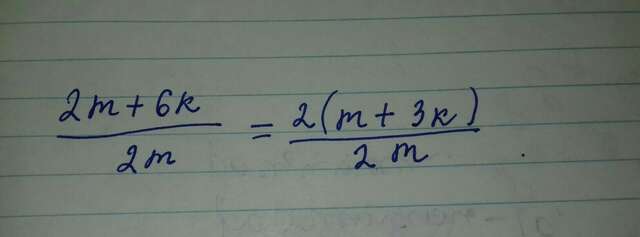 2m + 6k / 2m = 2(m + 3k) / 2m